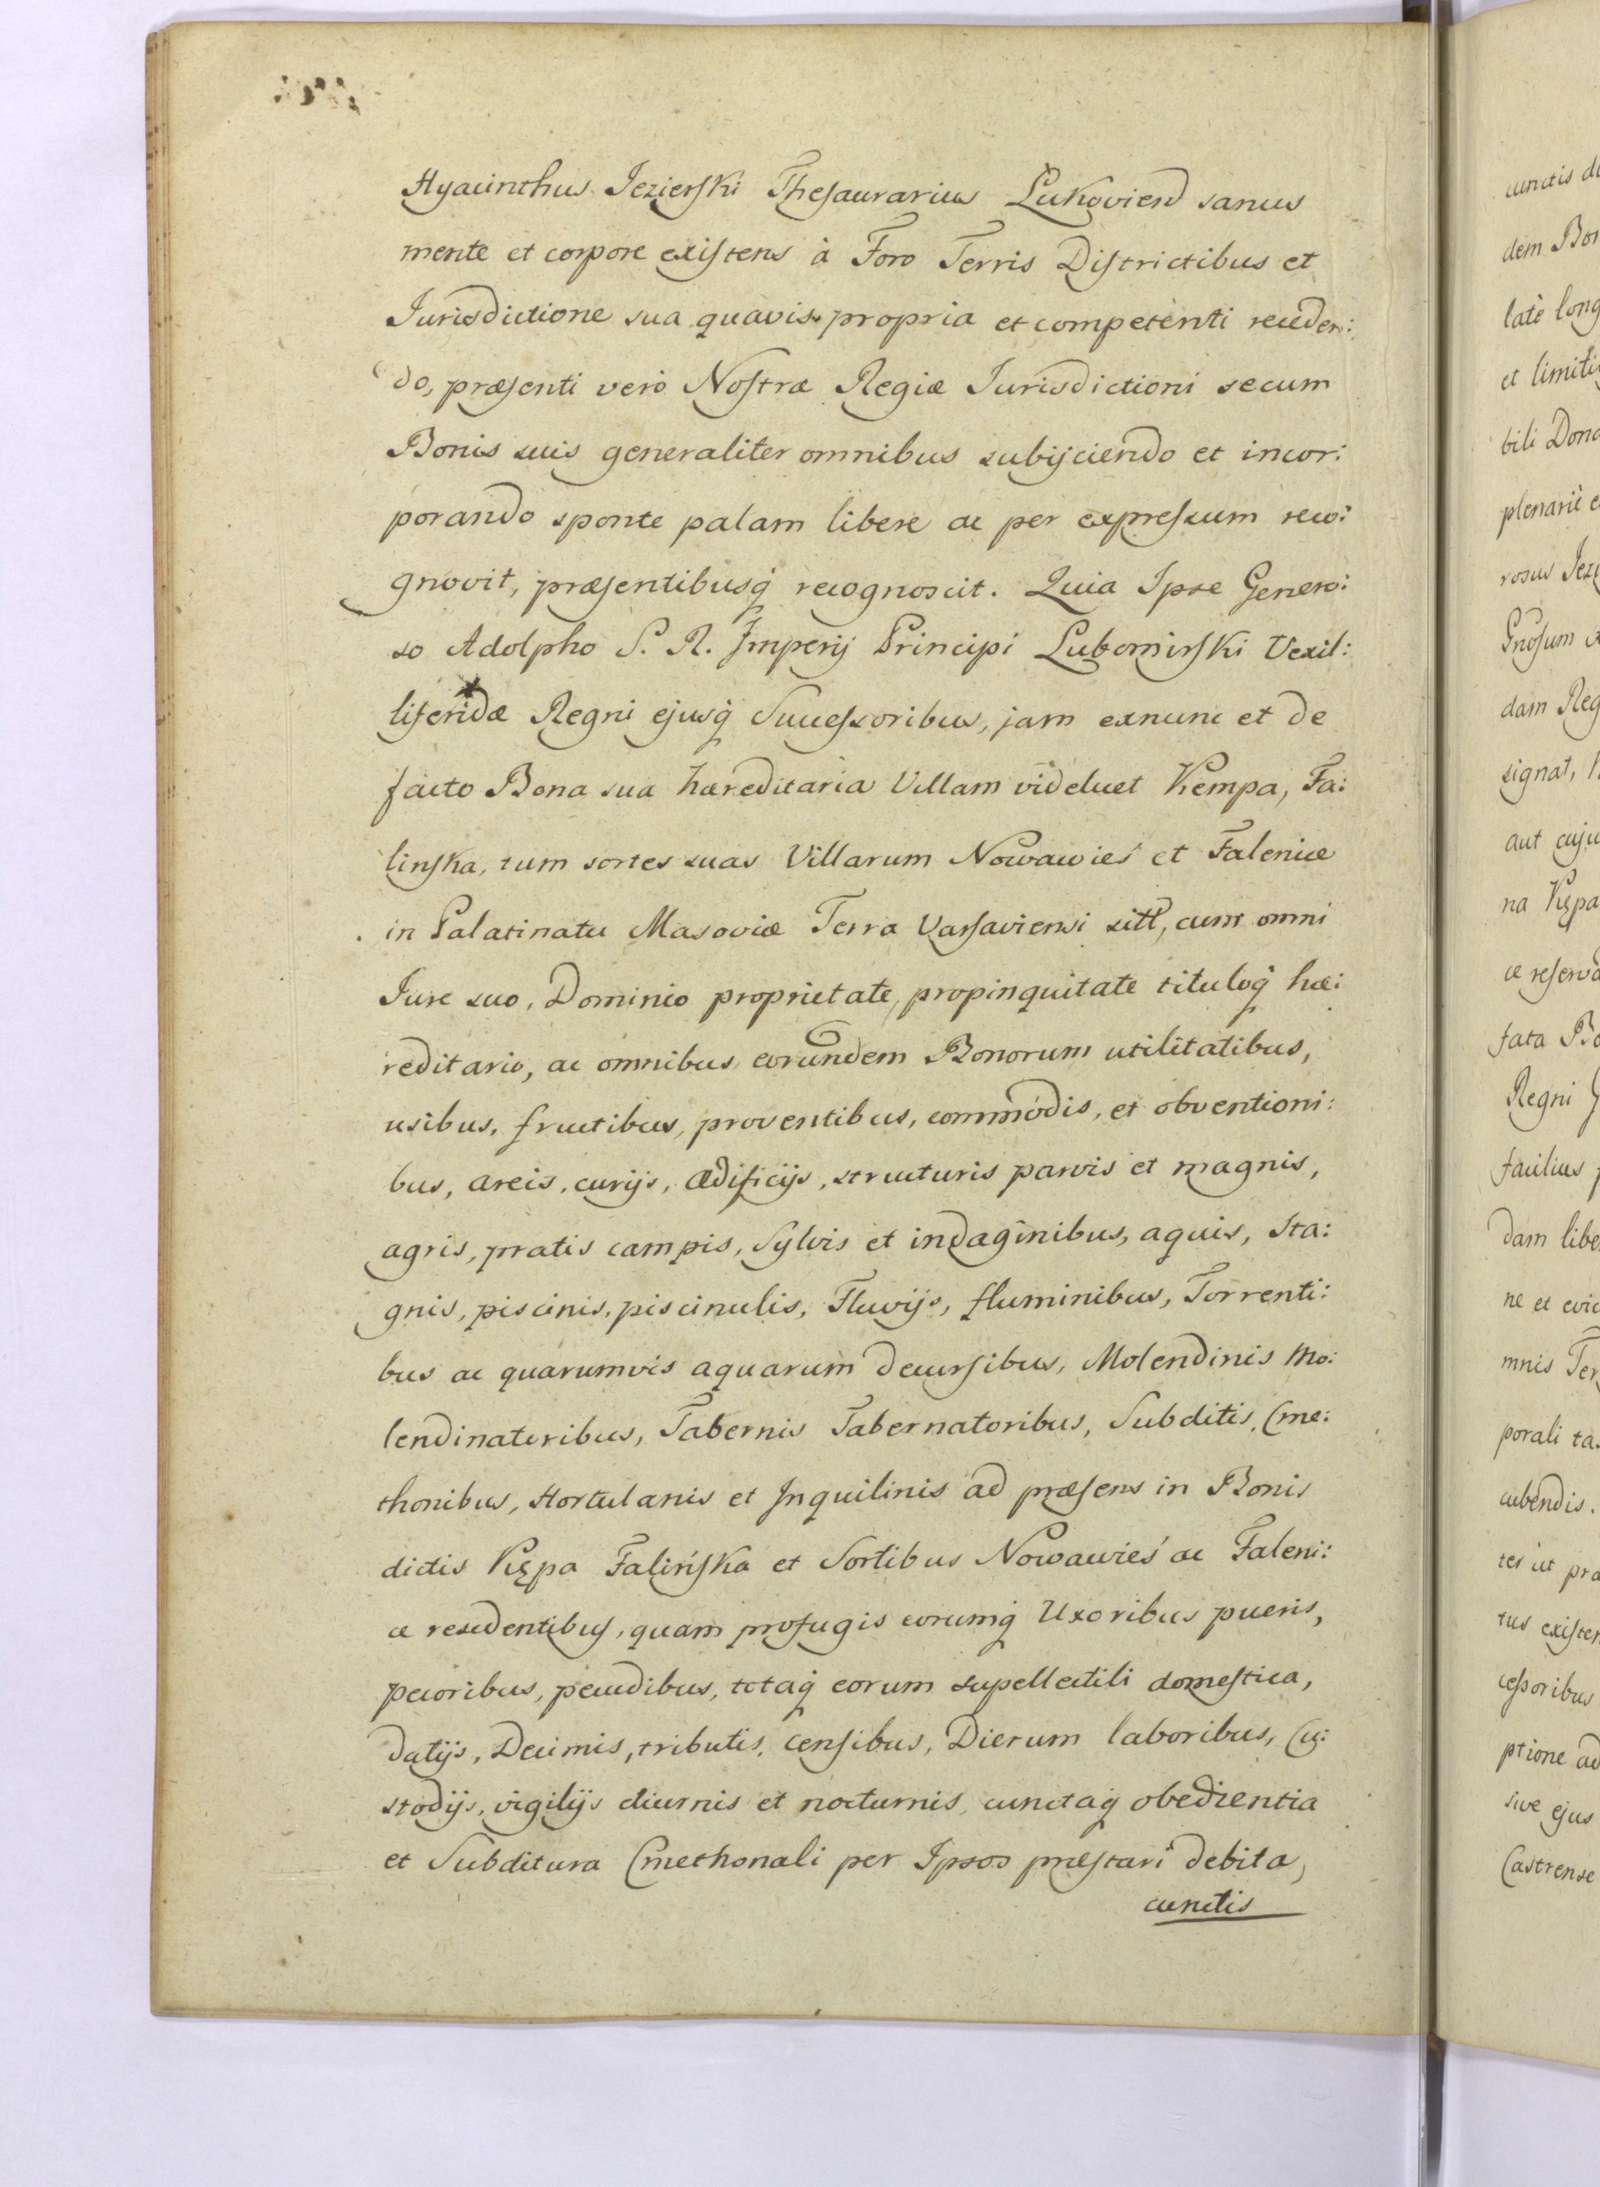 Hyacinthus Jezierski Thesaurarius Lukovien sanus
mente et corpore existens à Foro Terris Districtibus et
Jurisdictione sua quavis propria et competenti receden:
do, præsenti verò Nostræ Regiæ Jurisdictioni secum
Bonis suis generaliter omnibus subijciendo et incor:
porando sponte palam libere ac per expressum reco:
gnovit, præsentibusq recognoscit. Quia Ipse Genero:
so Adolpho S. R. Imperij Principi Lubomirski Vexil:
liferidæ Regni ejusq Successoribus, jam exnunc et de
facto Bona sua hæreditaria Villam videlicet Kempa, Fa:
linska, tum sortes suas Villarum Nowawieś et Falenice
in Palatinatu Masoviæ Terra Varsaviensi sitt, cum omni
Jure suo, Dominio proprietate, propinquitate tituloq hæ:
reditario, ac omnibus eorundem Bonorum utilitatibus,
usibus, fructibus, proventibus, commodis, et obventioni:
bus, areis, curijs, ædificijs, structuris parvis et magnis,
agris, pratis campis, Sylvis et indaginibus, aquis, Sta:
gnis, piscinis, piscinulis, Fluvijs, fluminibus, Torrenti:
bus ac quarumvis aquarum decursibus, Molendinis Mo:
lendinatoribus, Tabernis Tabernatoribus, Subditis, Cme:
thonibus, Hortulanis et Inquilinis ad præsens in Bonis
dictis Kępa Falińska et Sortibus Nowawieś ac Faleni:
ce residentibus, quam profugis eorumq Uxoribus pueris,
pecoribus, pecudibus, totaq eorum supellectili domestica,
datijs, Decimis, tributis, censibus, Dierum laboribus, Cu:
stodijs, vigilijs diurnis et nocturnis, cunctaq obedientia
et Subditura Cmethonali per Ipsos præstari debita,
cunctis
cunctis
dem
latè long
et limiti
bili Dona
plenariè
rosus Jezi
Gnosum
dam Reg
signat,
aut cuju
na Kępa
ce reserva
fata Bo
Regni
facilius
dam libe
ne et evic
mnis Ter
porali ta
cubendis.
tes ut pra
tus existen
cessoribus
ptione ad
sive ejus
Castrense